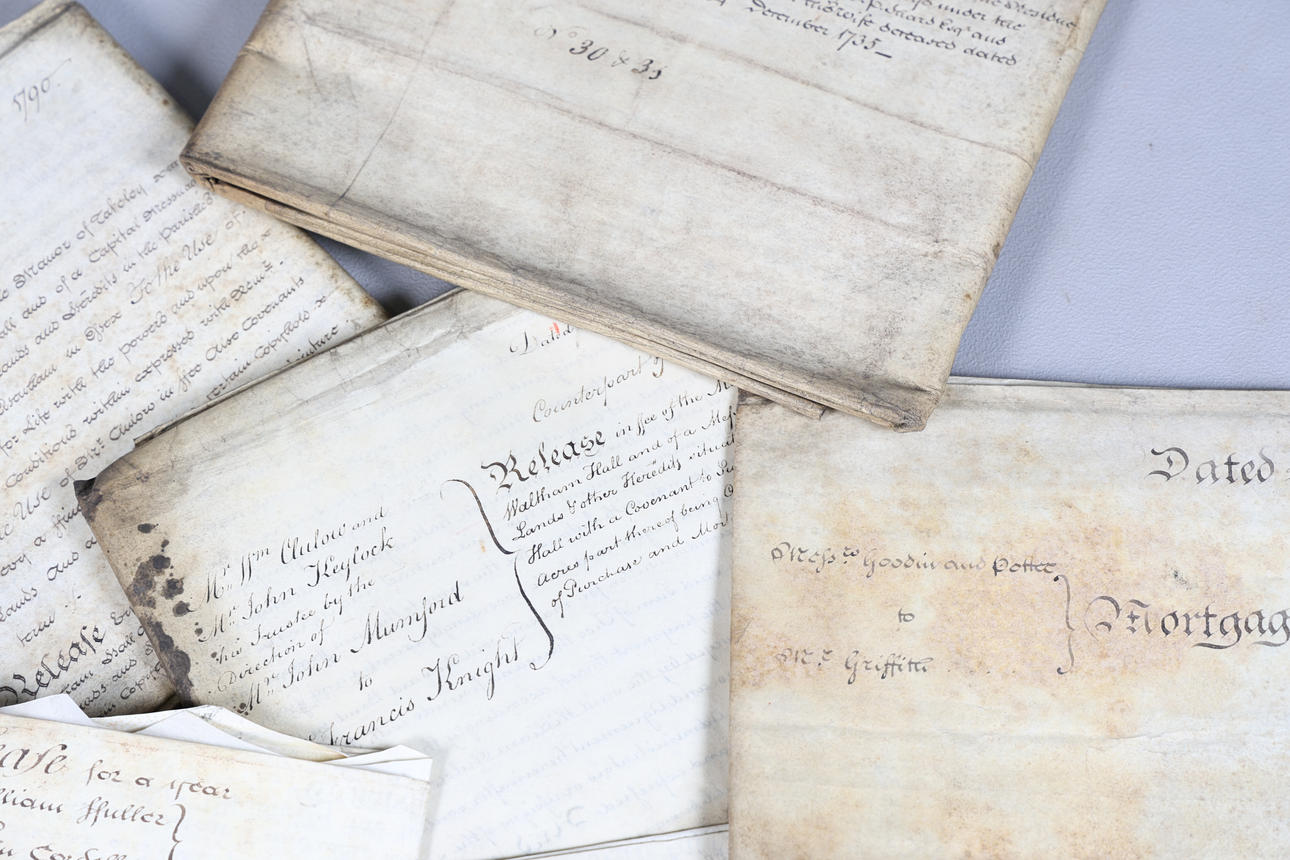 under the
Esqr. and
wife deceased dated
December 1735
No. 30 & 31
1790
Manor of Takeley
all and of a Capital Messuage
Lands and Heredits in the Parish of
in Essex To the Use of
for Life with the powers and upon the
Conditions within expressed with Remr.
Use of Mr. Clulow in fee Also Covenants
levy a fine certain Copyhold
Lands and a
Release
Dated
Counterpart of
Release in ffee of the M
Waltham Hall and of a Mess
Lands & other Heredits situat
Hall with a Covenant to Su
Acres part thereof being C
of Purchase and Mor
Mr. Wm. Clulow and
Mr. John Keylock
his Trustee by the
Direction of
Mr. John Mumford
to
Francis Knight
Dated
Messrs. Goodin and Potter
to
Mr. Griffith
Mortgag
ease for a year
lliam Fuller